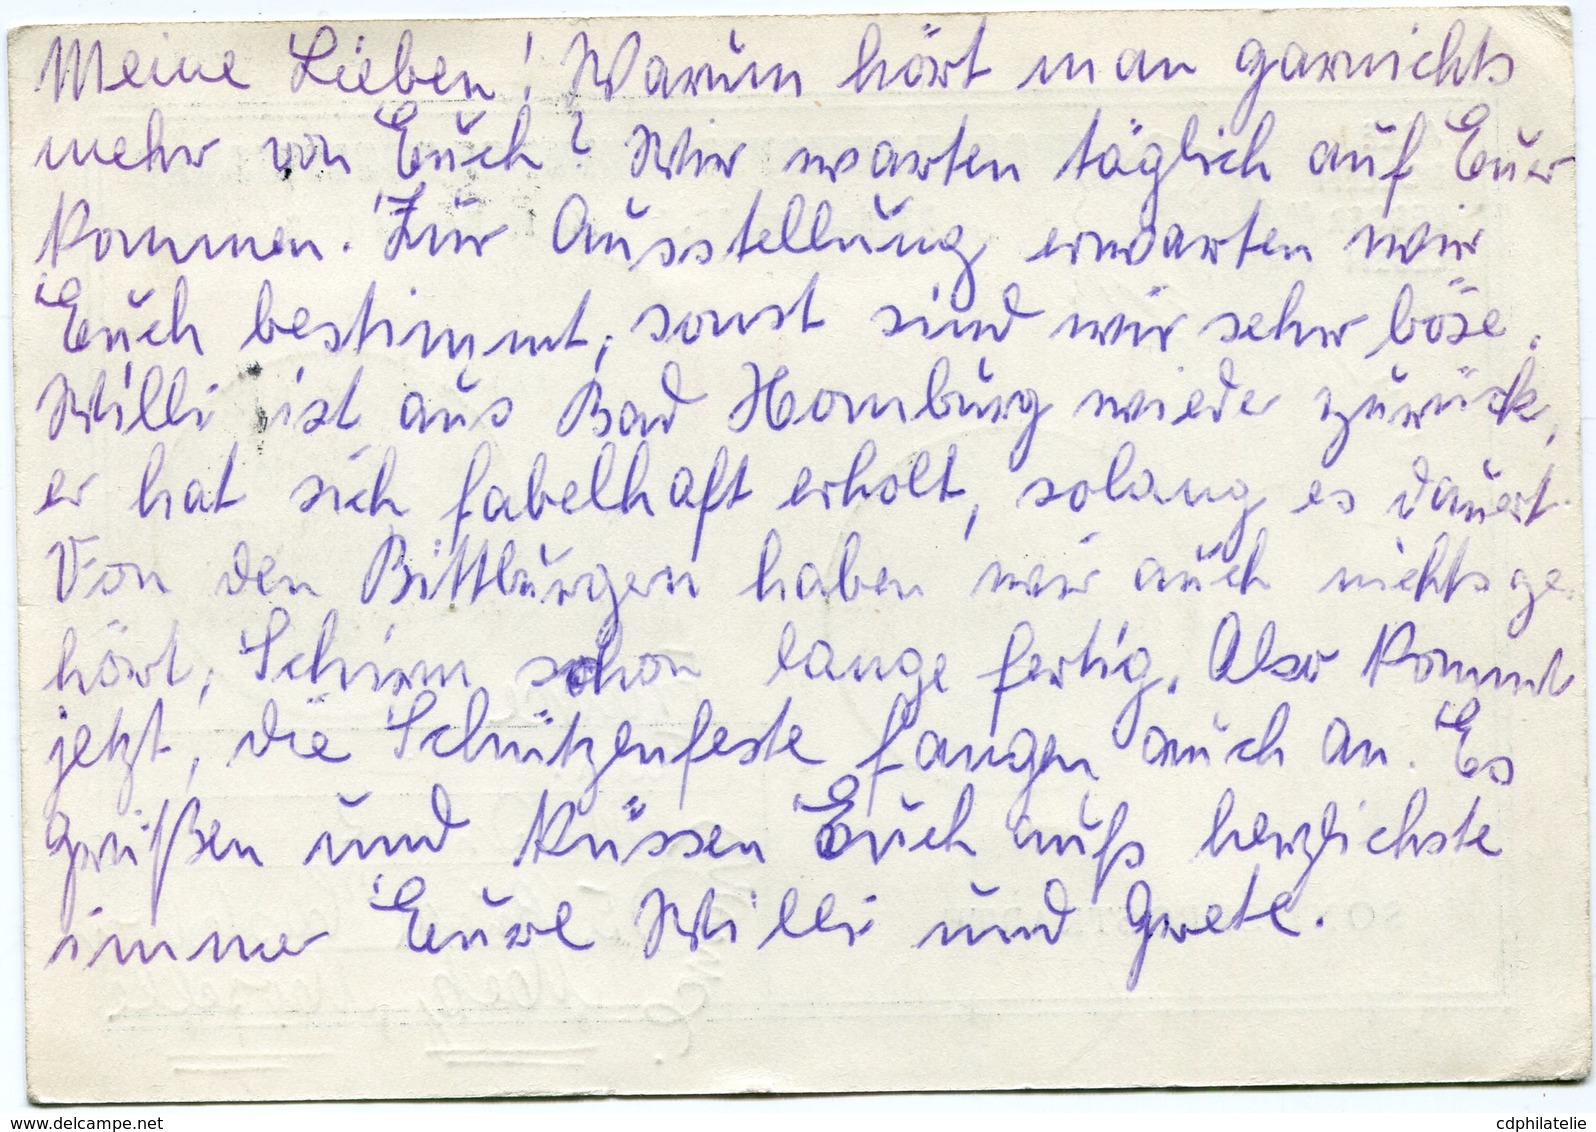 Meine Lieben! Warum hört man garnichts
mehr von Euch? Wir warten täglich auf Euer
kommen. Zur Ausstellung erwarten wir
Euch bestimmt, sonst sind wir sehr böse.
Willi ist aus Bad Homburg wieder zurück,
er hat sich fabelhaft erholt, solang es dauert.
Von den Bittburgern haben wir auch nichts ge-
hört, Schirm schon lange fertig. Also kommt
jetzt, die Schützenfeste fangen auch an. Es
grüßen und küssen Euch aufs herzlichste
immer Eure Willi und Grete.
www.delcampe.net
cdphilatelie